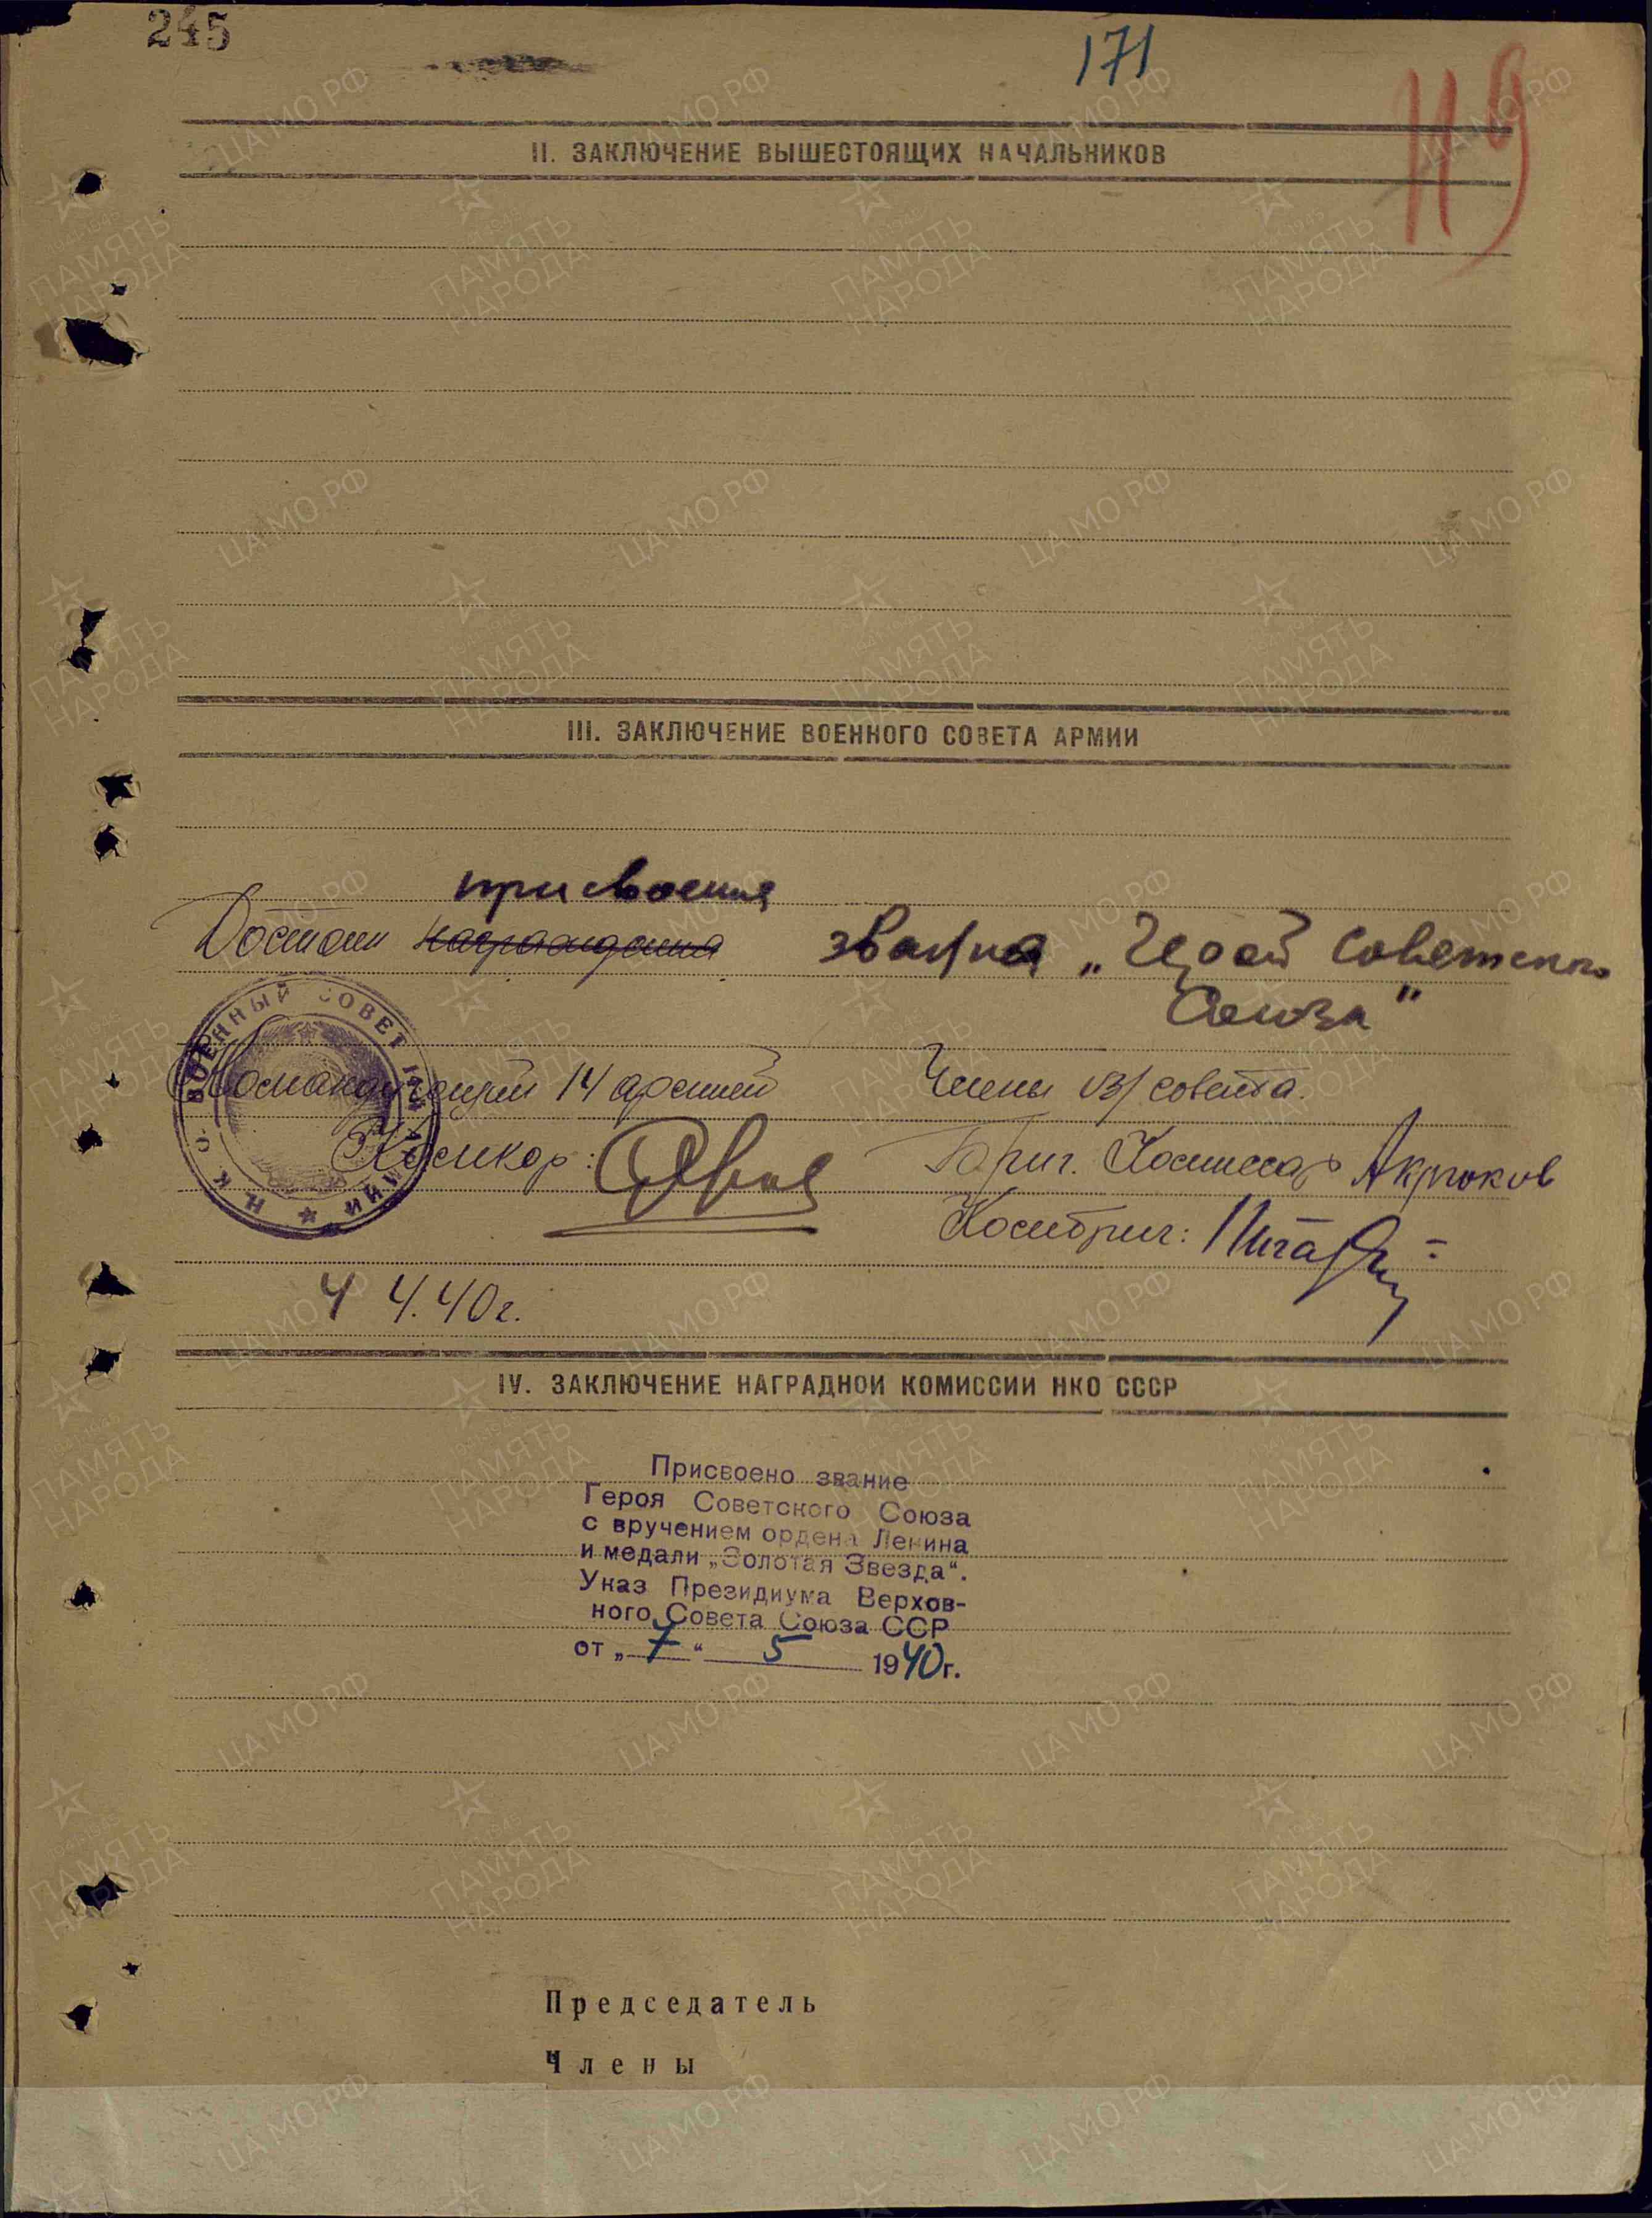 245
171
119
II. ЗАКЛЮЧЕНИЕ ВЫШЕСТОЯЩИХ НАЧАЛЬНИКОВ
III. ЗАКЛЮЧЕНИЕ ВОЕННОГО СОВЕТА АРМИИ
присвоения
Достоин награждения звания „Герой Советского
Союза"
ВОЕННЫЙ СОВЕТ 14 АРМИИ ★ Н.К.О.
Командующий 14 армией Члены в/совета.
Комкор: Бриг. Комиссар
Комбриг:
4 4.40г.
IV. ЗАКЛЮЧЕНИЕ НАГРАДНОЙ КОМИССИИ НКО СССР
Присвоено звание
Героя Советского Союза
с вручением ордена Ленина
и медали „Золотая Звезда".
Указ Президиума Верхов-
ного Совета Союза ССР
от „7" 5 1940г.
Председатель
Члены
ЦА МО РФ
ПАМЯТЬ НАРОДА